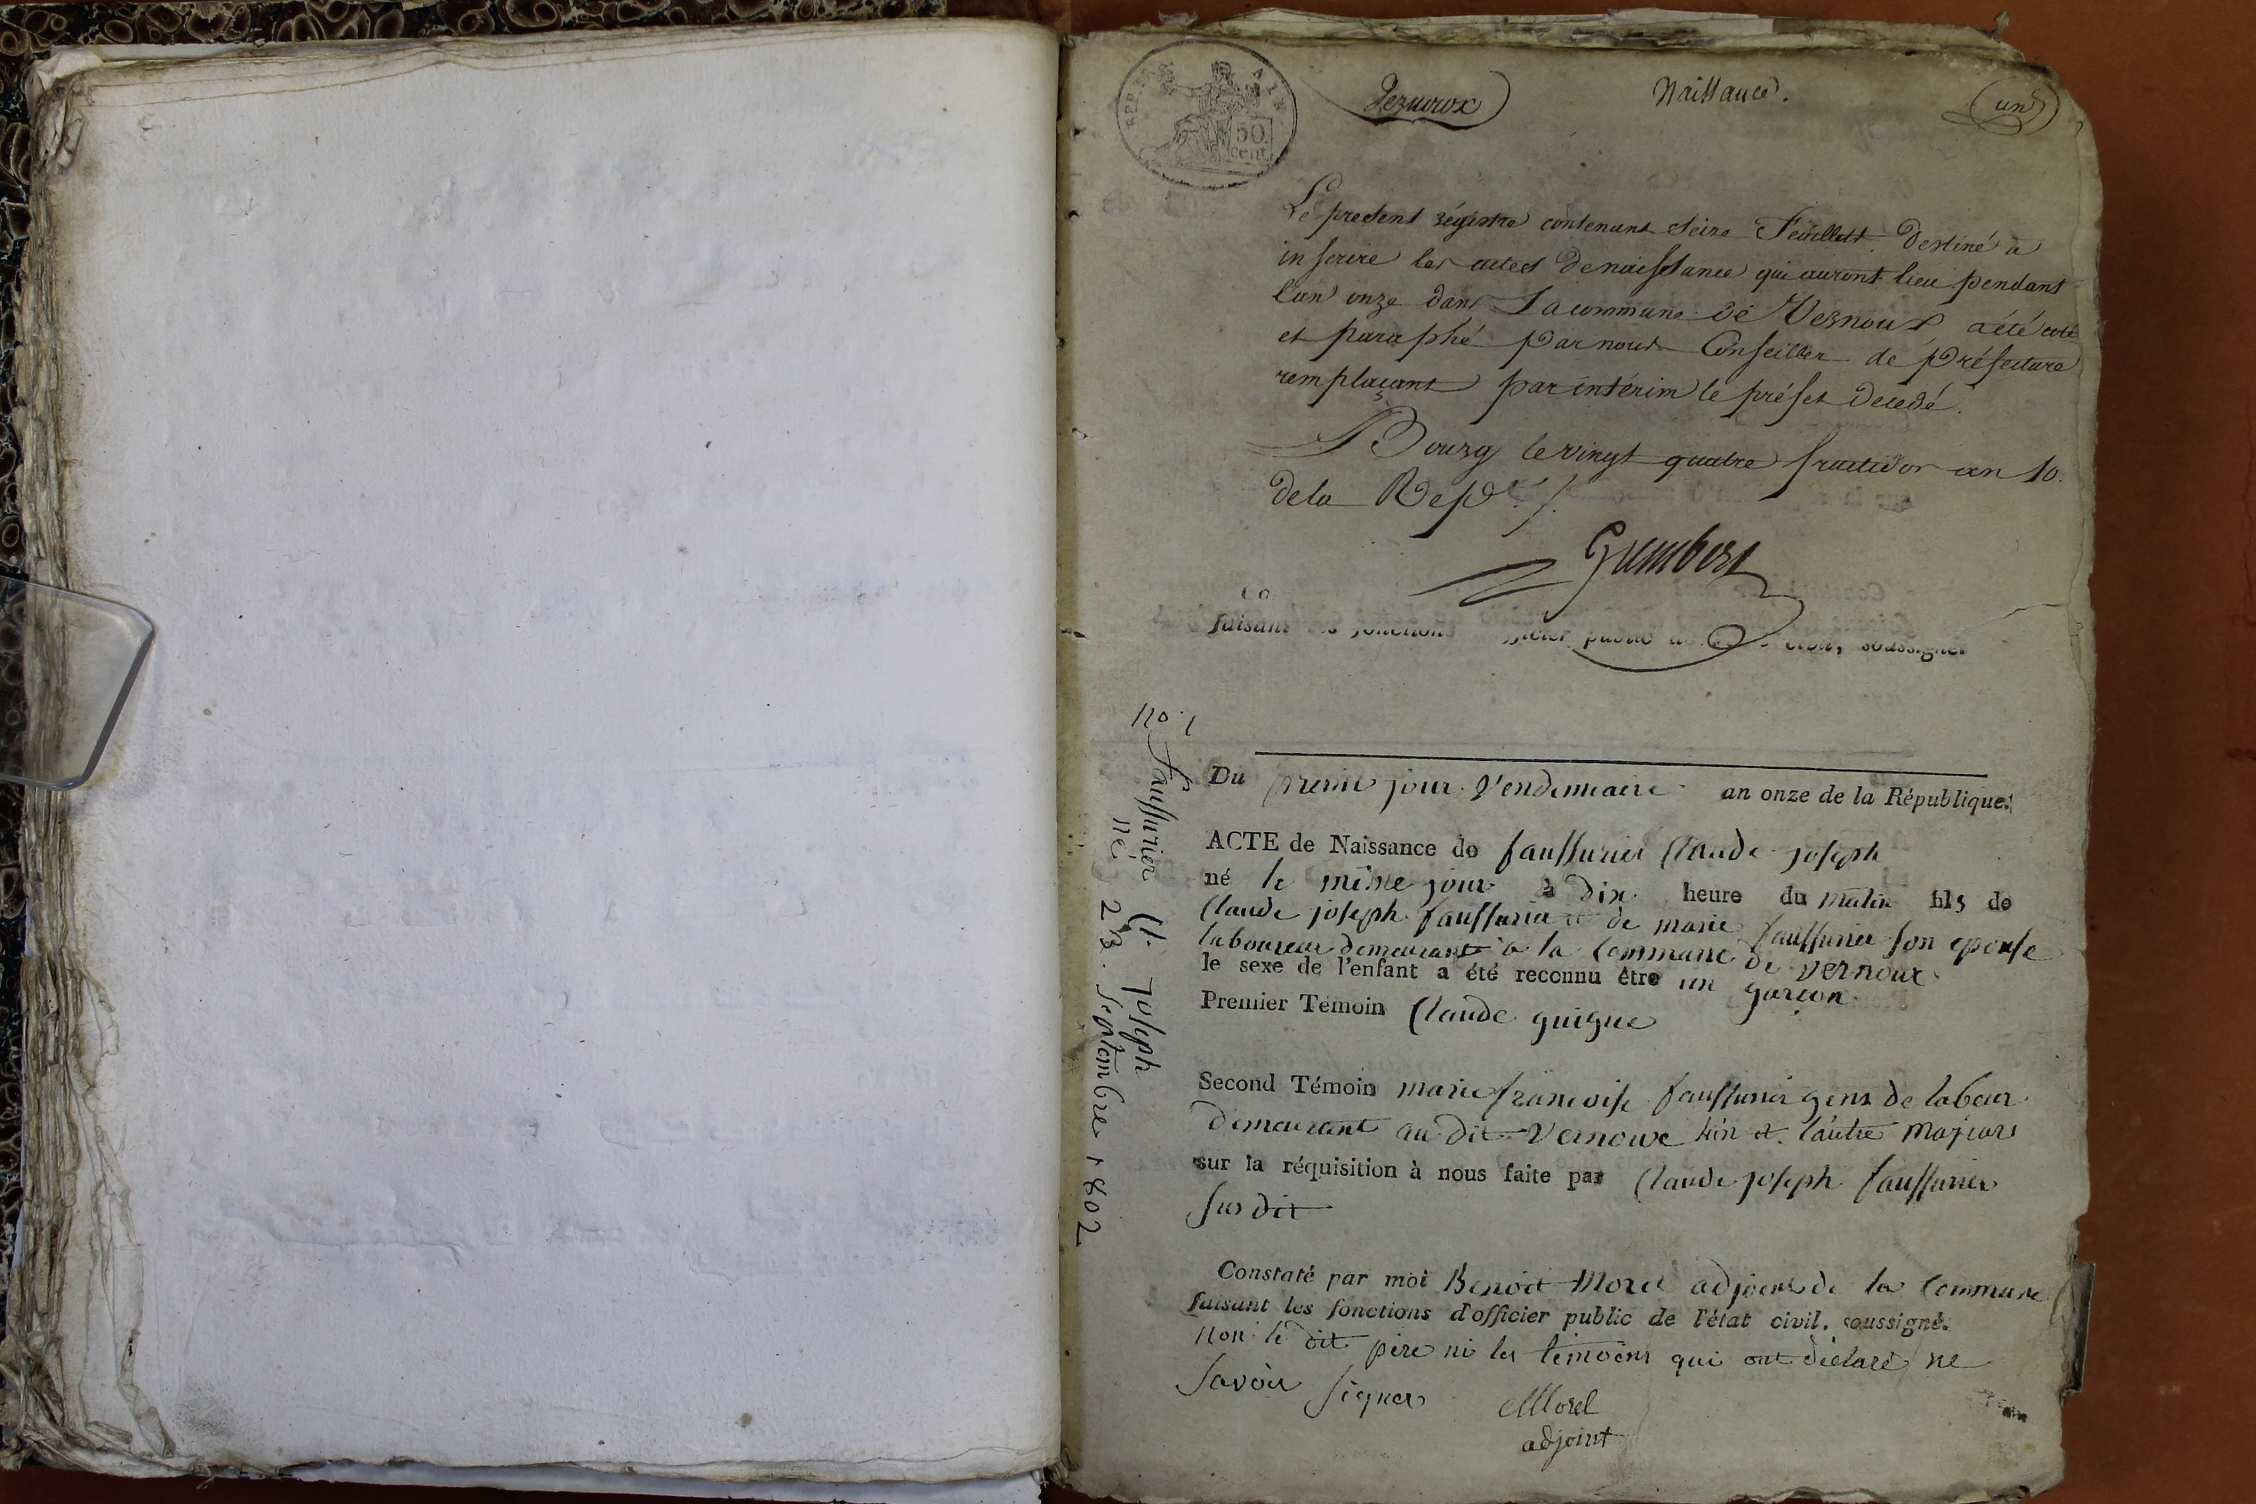 REP. FRA
AIN
50
cent.
Vernoux
Naissance.
un
Le present régistre contenant seize Feuillets destiné à
inscrire les actes de naissance qui auront lieu pendant
l'an onze dans La commune de Vernoux a été coté
et paraphé par nous Conseiller de préfecture
remplaçant par intérim le préfet decedé.
A Bourg le vingt quatre fructidor an 10.
de la Rep.
Gumbert
faisant fonctions public soussigné
no. 1
Faussurier Cl. Joseph
né 23. septembre 1802
Du premie jour. Vendemiaire an onze de la République.
ACTE de Naissance de faussurier Claude joseph
né le même jour à dix heure du matin fils de
Claude joseph faussurier et de marie faussurier son epouse
laboureur demeurant à la Commune de vernoux
le sexe de l'enfant a été reconnu être un garçon.
Premier Témoin Claude guigue
Second Témoin marie francoise faussurier gens de labeur
demeurant au dit Vernoux l'un et l'autre majeurs
sur la réquisition à nous faite par Claude joseph faussurier
sus dit
Constaté par moi Benoit Morel adjoint de la Commune
faisant les fonctions d'officier public de l'état civil. soussigné.
non le dit père ni les témoins qui ont déclaré ne
savoir signer
Morel
adjoint